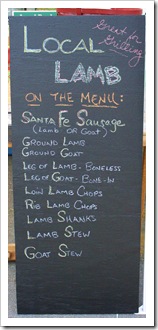 Great for
Grilling
LOCAL
LAMB
ON THE MENU:
SANTA FE SAUSAGE
(LAMB OR GOAT)
GROUND LAMB
GROUND GOAT
LEG OF LAMB - BONELESS
LEG OF GOAT - BONE-IN
LOIN LAMB CHOPS
RIB LAMB CHOPS
LAMB SHANKS
LAMB STEW
GOAT STEW